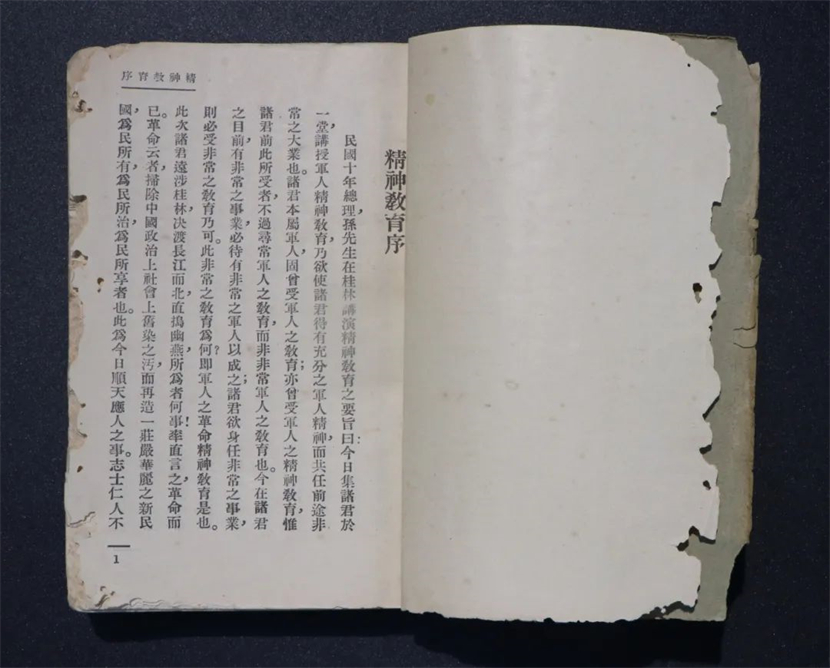 精神教育序
精神教育序
民國十年總理孫先生在桂林講演精神教育之要旨曰:今日集諸君於
一堂,講授軍人精神教育,乃欲使諸君得有充分之軍人精神,而共任前途非
常之大業也。諸君本屬軍人,固曾受軍人之教育;亦曾受軍人之精神教育,惟
諸君前此所受者,不過尋常軍人之教育,而非非常軍人之教育也。今在諸君
之目前,有非常之事業,必待有非常之軍人以成之;諸君欲身任非常之事業,
則必受非常之教育乃可。此非常之教育爲何?即軍人之革命精神教育是也。
此次諸君遠涉桂林,決渡長江而北,直搗幽燕,所爲者何事!率直言之,革命而
已。革命云者,掃除中國政治上社會上舊染之汚,而再造一莊嚴華麗之新民
國,爲民所有,爲民所治,爲民所享者也。此爲今日順天應人之事。志士仁人不
1